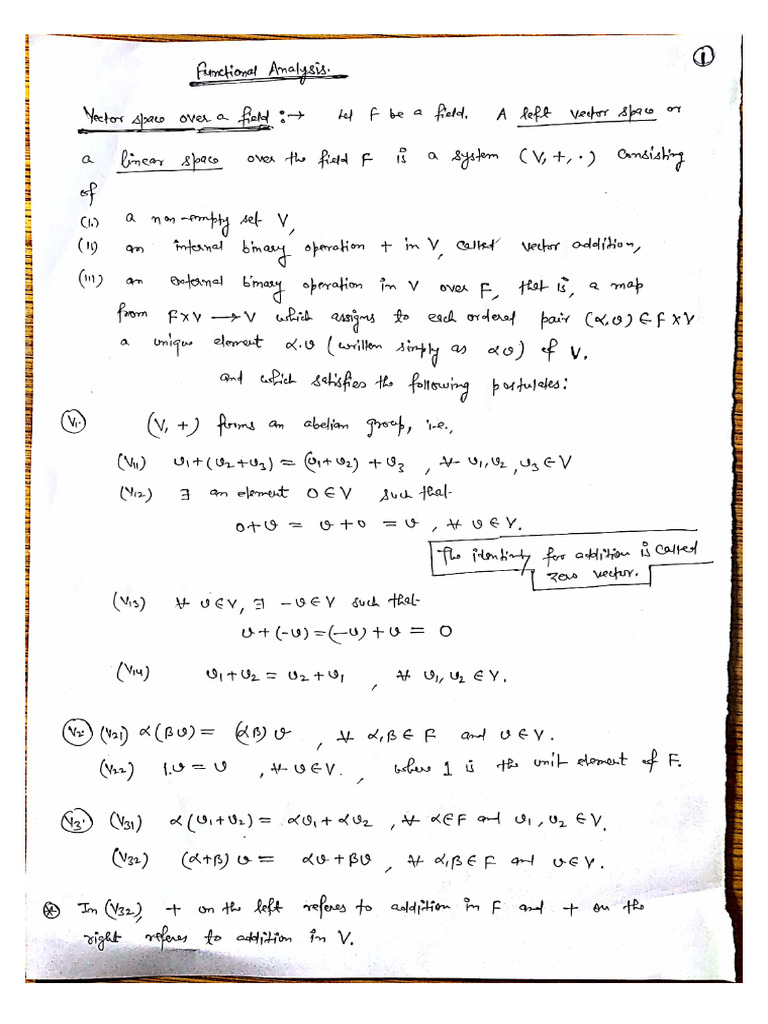 1
Functional Analysis.
Vector space over a field :→ Let F be a field. A left vector space or
a linear space over the field F is a system (V, +, ·) consisting
of
(i.) a non-empty set V,
(ii) an internal binary operation + in V, called vector addition,
(iii) an external binary operation in V over F, that is, a map
from F×V ⟶ V which assigns to each ordered pair (α,v) ∈ F×V
a unique element α.v (written simply as αv) of V.
and which satisfies the following postulates:
V1. (V, +) forms an abelian group, i.e.,
(V11) v1+(v2+v3) = (v1+v2)+v3 , ∀ v1,v2,v3 ∈ V
(V12) ∃ an element 0∈V such that
0+v = v+0 = v , ∀ v∈V.
The identity for addition is called
zero vector.
(V13) ∀ v∈V, ∃ -v∈V such that
v+(-v)=(-v)+v = 0
(V14) v1+v2 = v2+v1 , ∀ v1,v2 ∈ V.
V2. (V21) α(βv) = (αβ)v , ∀ α,β∈ F and v∈V.
(V22) 1.v = v , ∀ v∈V. , where 1 is the unit element of F.
V3. (V31) α(v1+v2) = αv1+αv2 , ∀ α∈F and v1,v2 ∈V.
(V32) (α+β)v = αv+βv , ∀ α,β∈F and v∈V.
⊛ In (V32), + on the left referes to addition in F and + on the
right referes to addition in V.